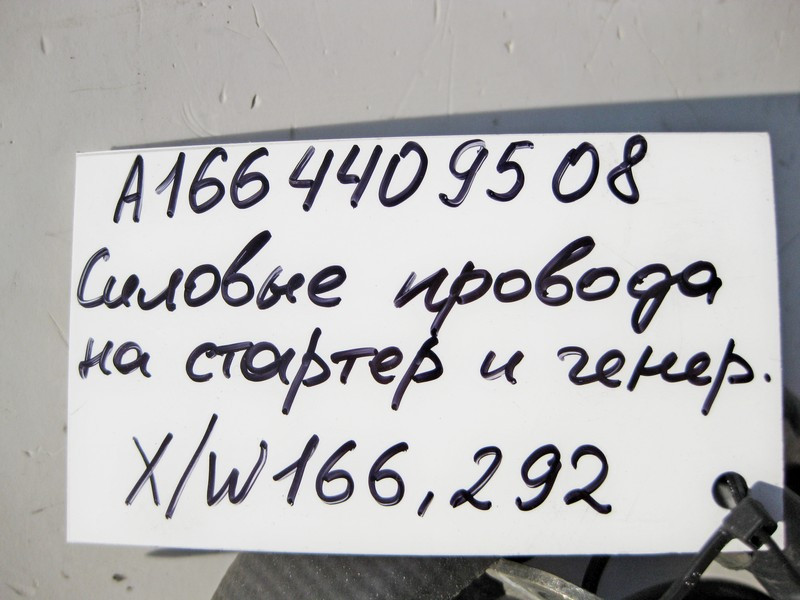 A166 440 95 08
Силовые провода
на стартер и генер.
X/W166, 292